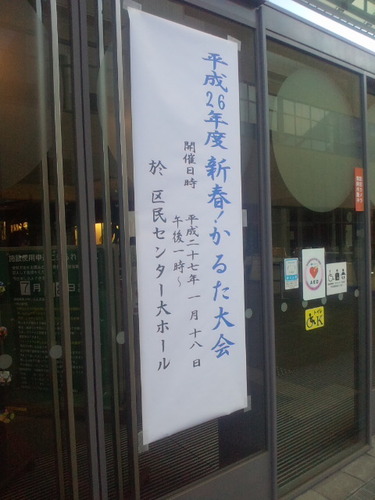 平成26年度新春!かるた大会
開催日時 平成二十七年一月十八日
午後一時~
於 区民センター大ホール
7月